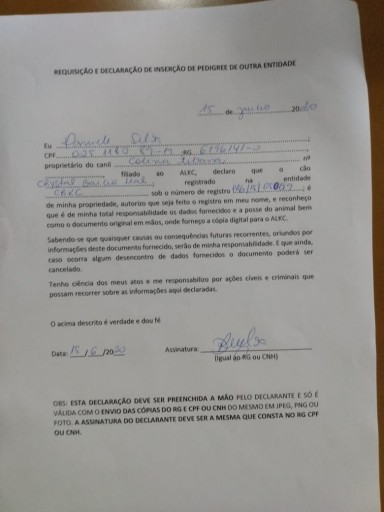 REQUISIÇÃO E DECLARAÇÃO DE INSERÇÃO DE PEDIGREE DE OUTRA ENTIDADE
15 de junho 2020
Eu Daniele Silva
CPF RG
proprietário do canil Colina nº
filiado ao ALKC, declaro que o cão
Crystal Leal, registrado na entidade
CBKC sob o número de registro é
de minha propriedade, autorizo que seja feito o registro em meu nome, e reconheço
que é de minha total responsabilidade os dados fornecidos e a posse do animal bem
como o documento original em mãos, onde forneço a cópia digital para o ALKC.
Sabendo-se que quaisquer causas ou consequências futuras recorrentes, oriundos por
informações deste documento fornecido, serão de minha responsabilidade. E que ainda,
caso ocorra algum desencontro de dados fornecidos o documento poderá ser
cancelado.
Tenho ciência dos meus atos e me responsabilizo por ações cíveis e criminais que
possam recorrer sobre as informações aqui declaradas.
O acima descrito é verdade e dou fé
Data: 15 / 6 /2020 Assinatura:
(Igual ao RG ou CNH)
OBS: ESTA DECLARAÇÃO DEVE SER PREENCHIDA A MÃO PELO DECLARANTE E SÓ É
VÁLIDA COM O ENVIO DAS CÓPIAS DO RG E CPF OU CNH DO MESMO EM JPEG, PNG OU
FOTO. A ASSINATURA DO DECLARANTE DEVE SER A MESMA QUE CONSTA NO RG CPF
OU CNH.